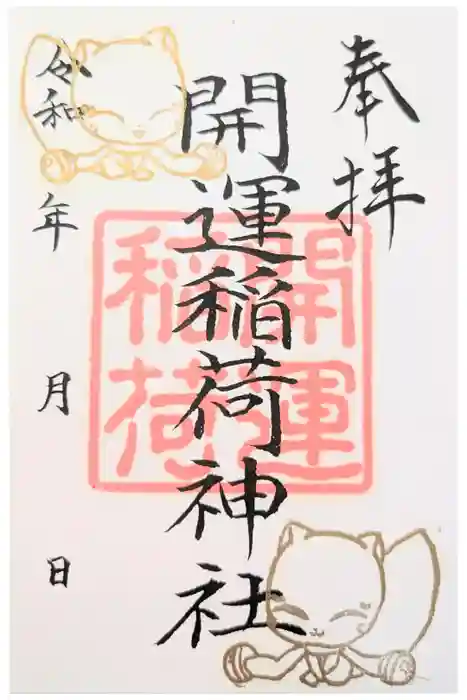 奉拝
開運稲荷神社
開運稲荷
令和　年　月　日